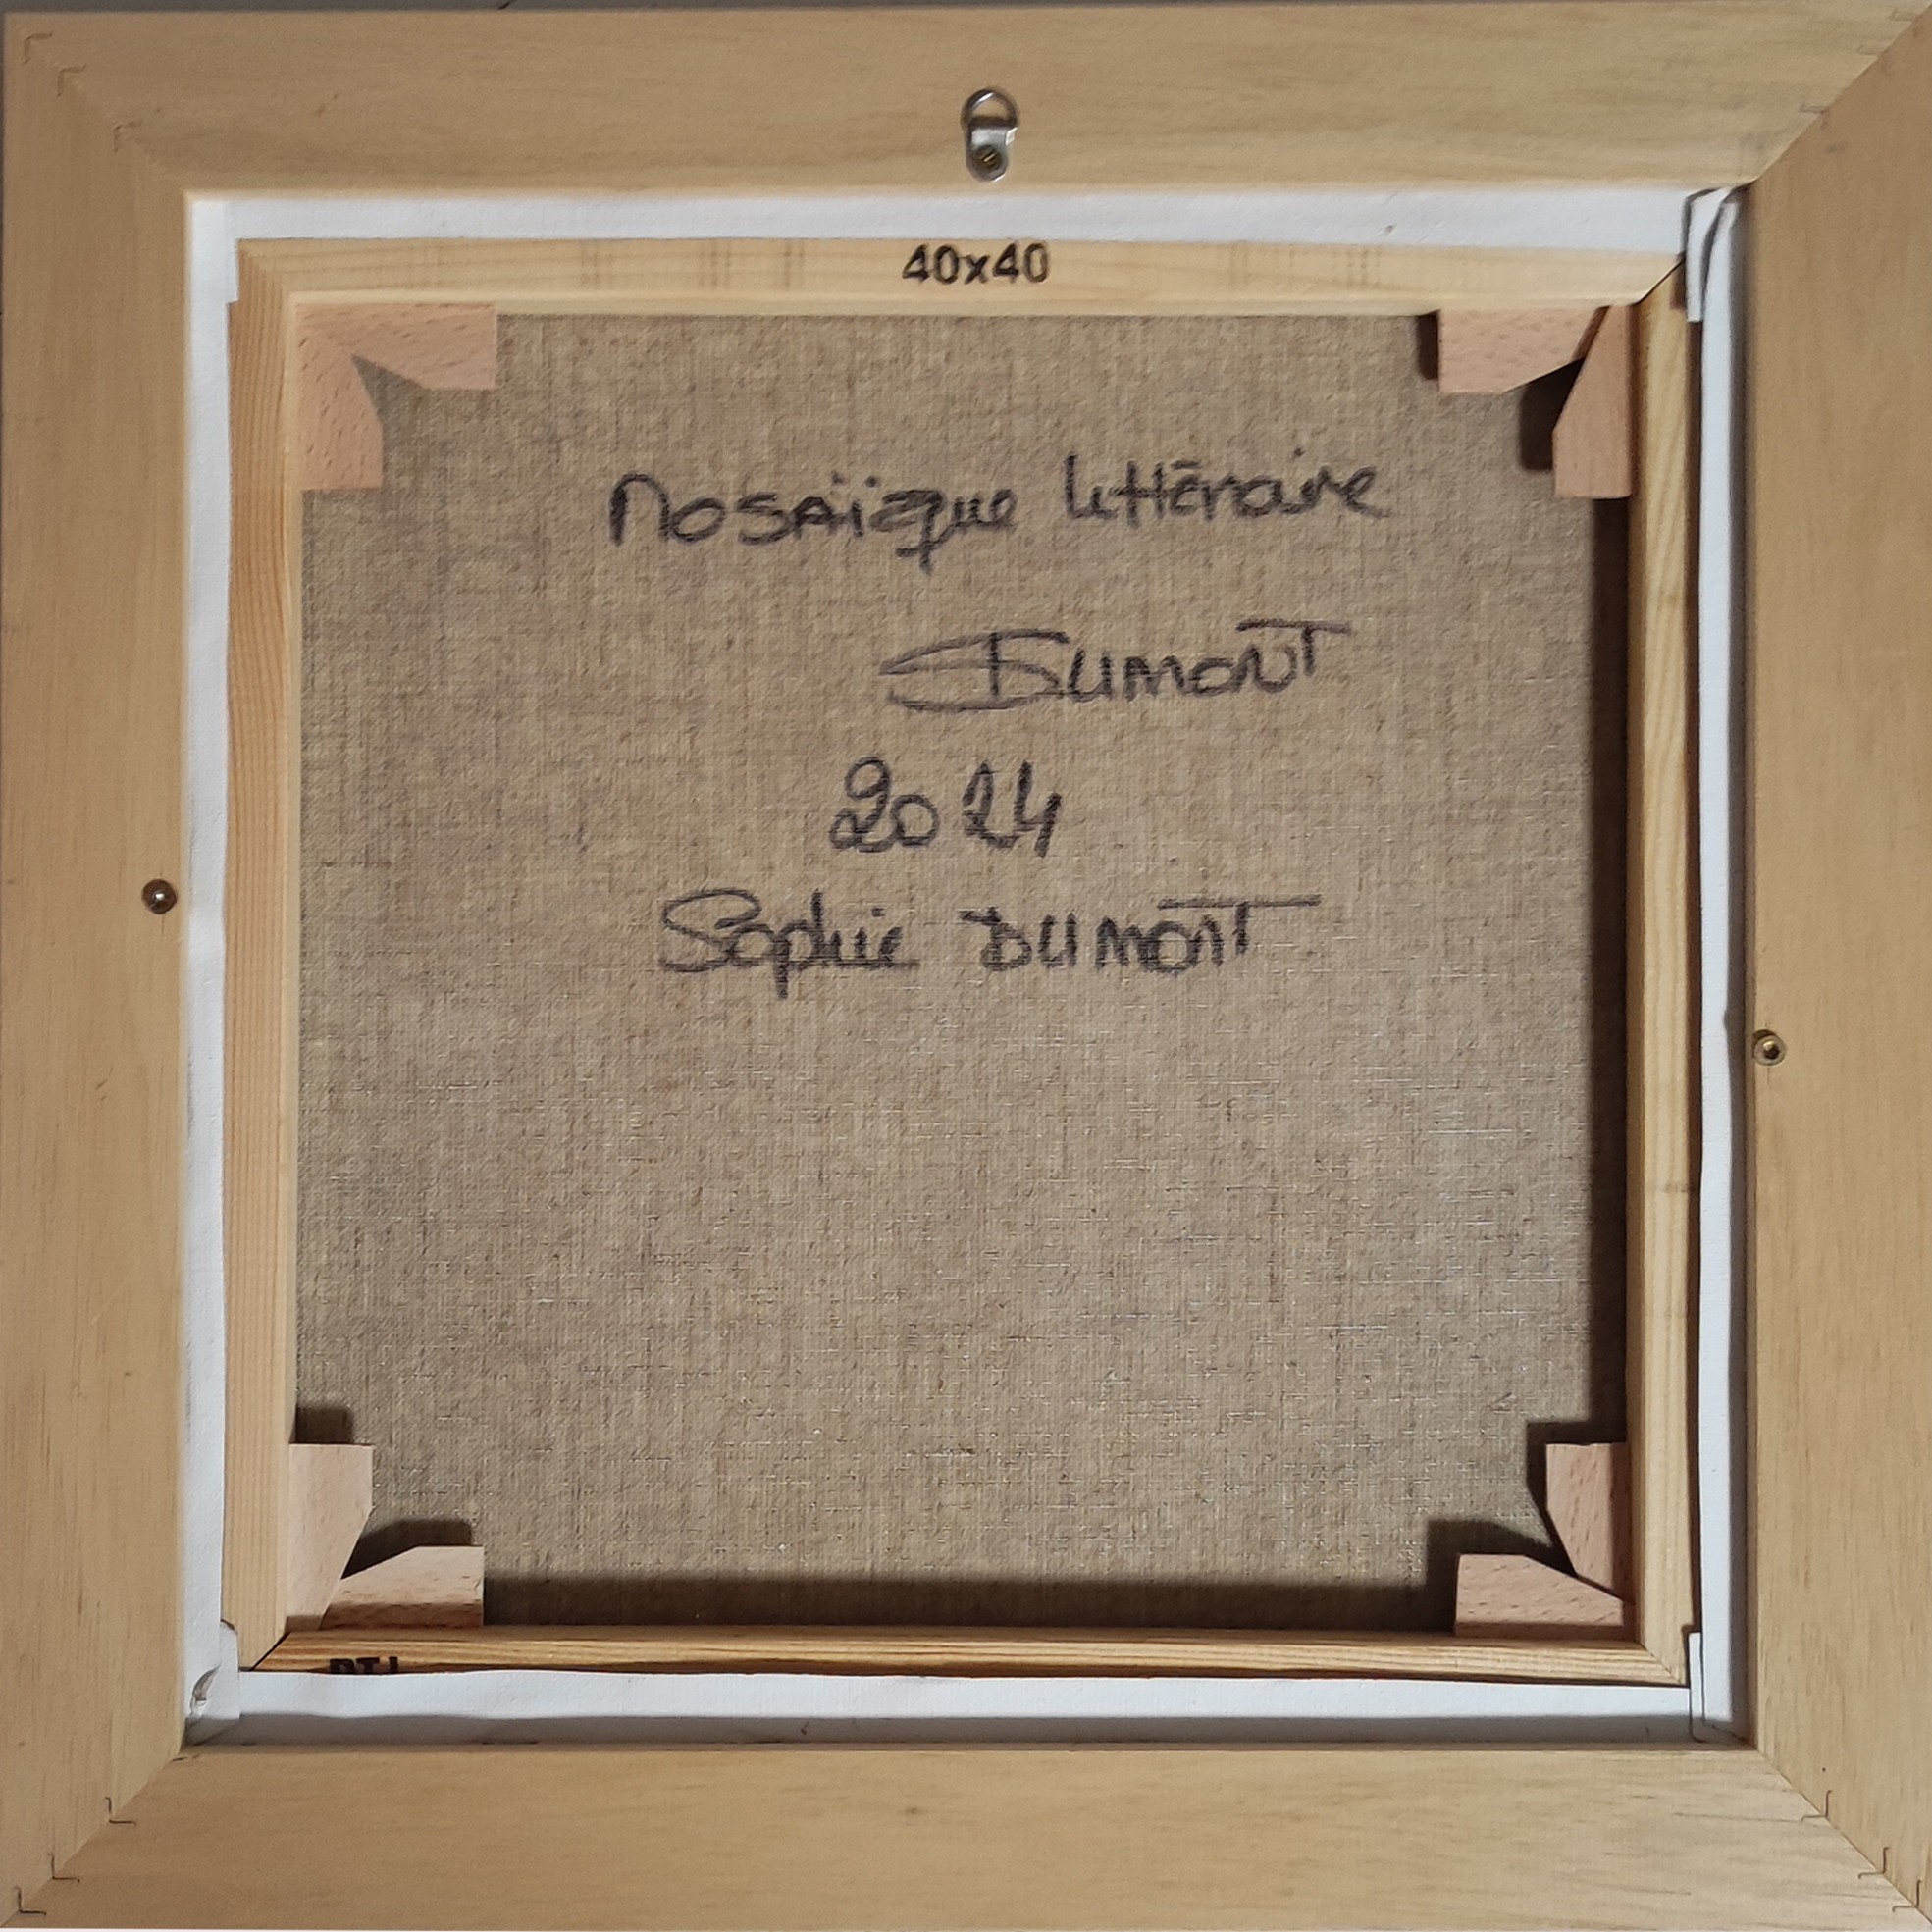 40x40
Mosaïque littéraire
SDUMONT
2024
Sophie DUMONT